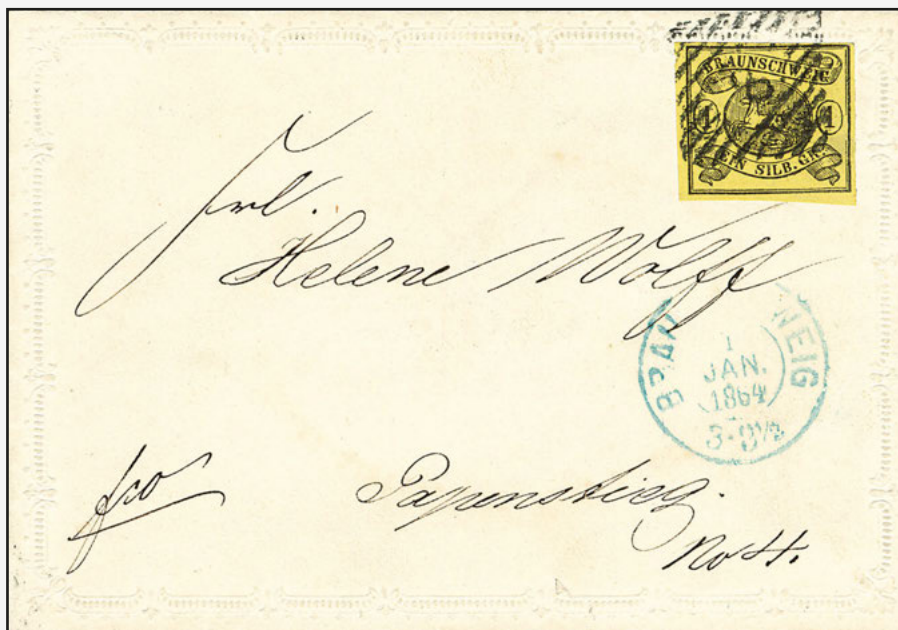 BRAUNSCHWEIG
1 1
EIN SILB. GR.
Frl.
Helene Wolff
1
JAN.
1864
fro
Papenstieg.
No 4.